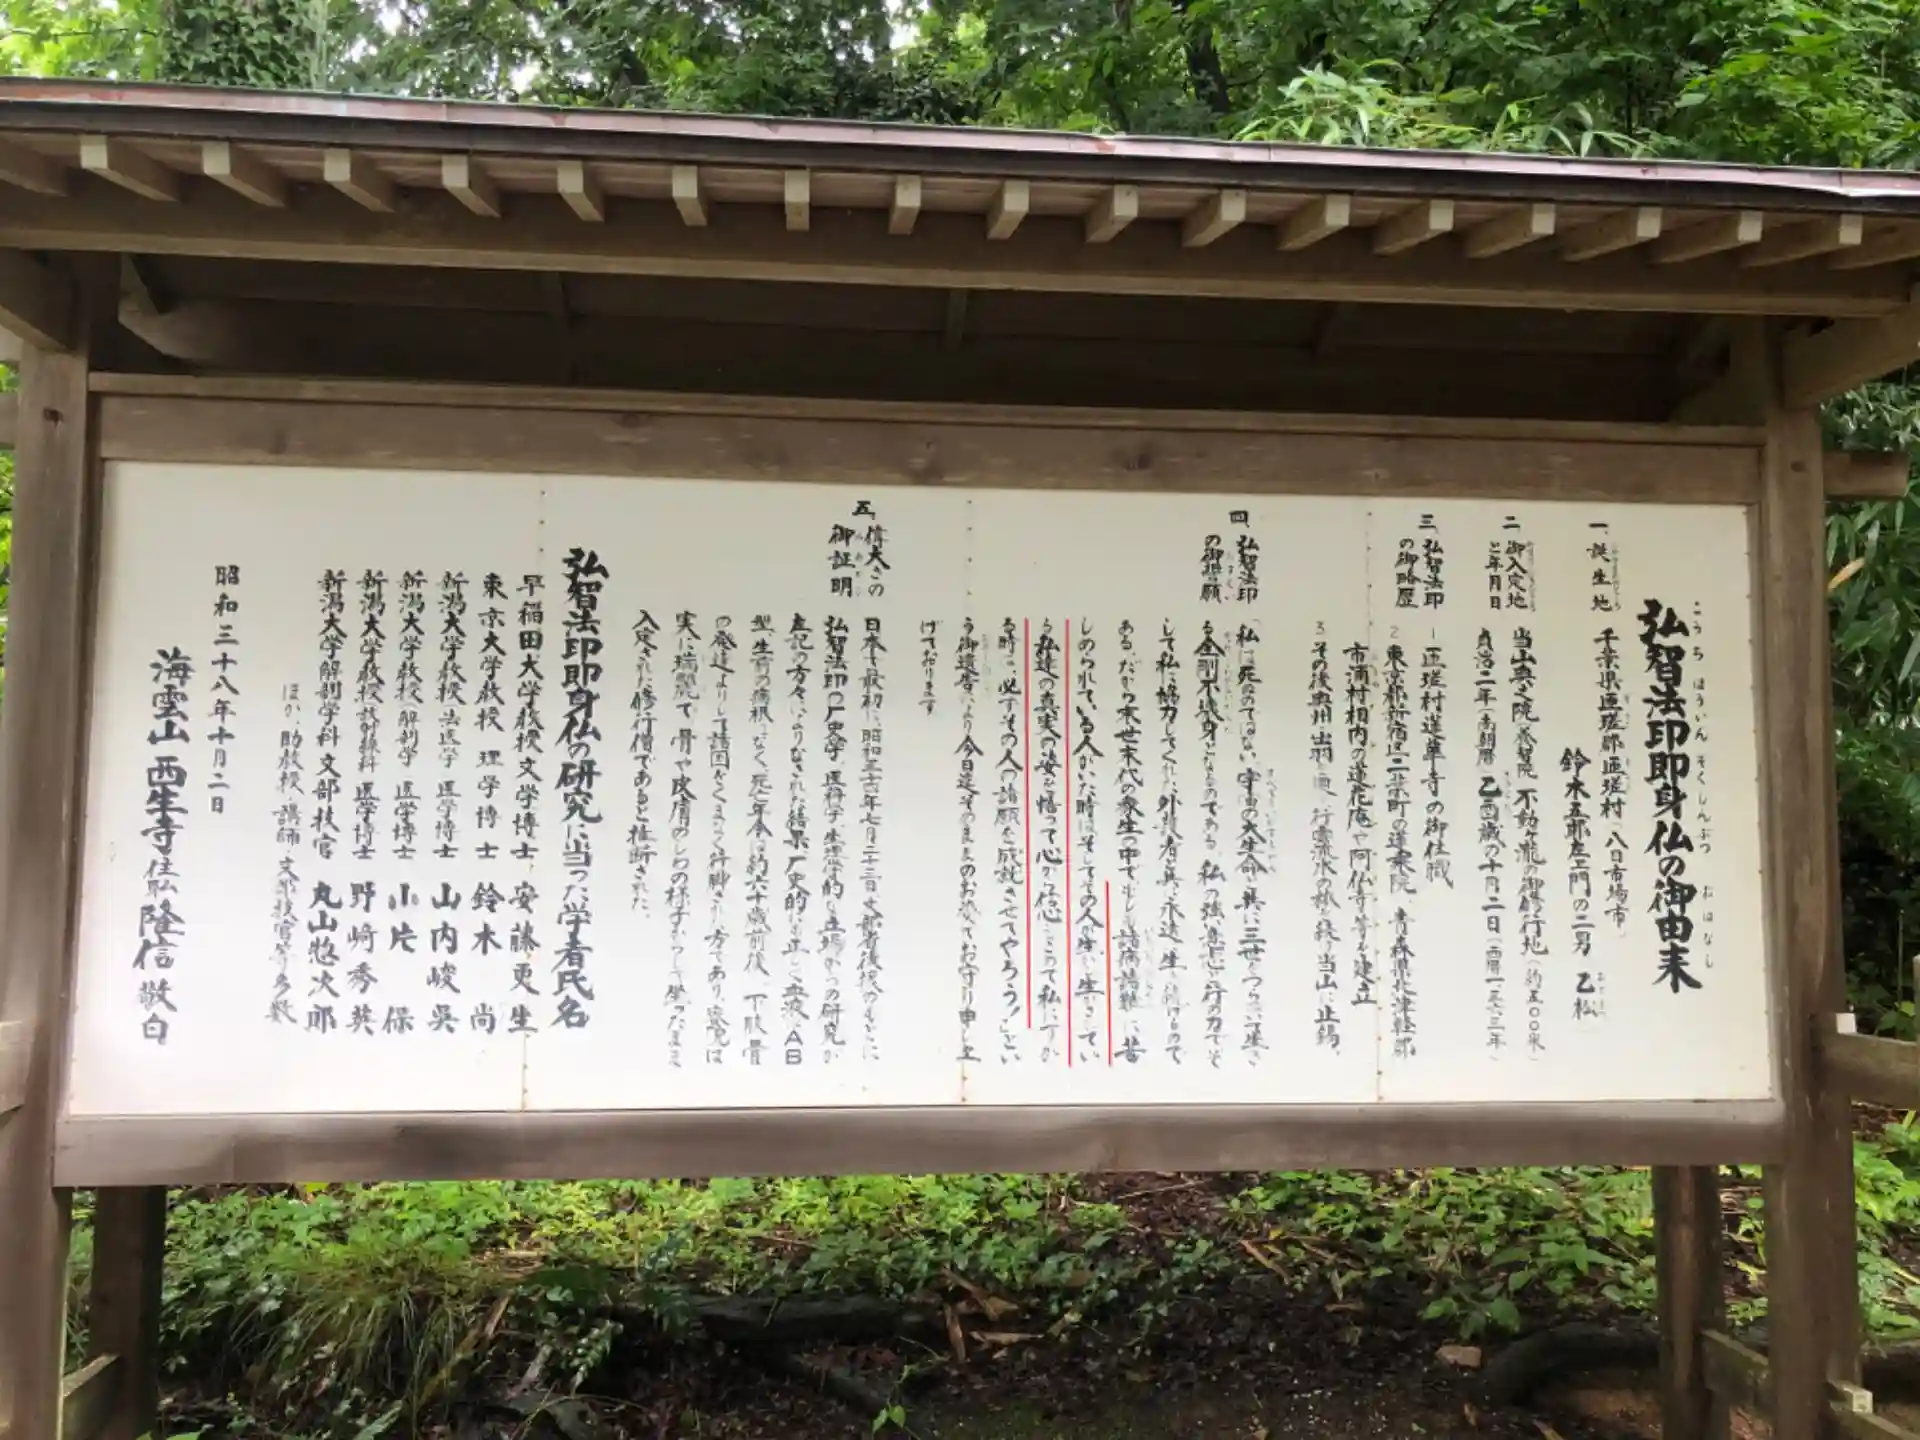 こうちほういんそくしんぶつおはなし
弘智法印即身仏の御由来
一、誕生地
千葉県匝瑳郡匝瑳村(八日市場市)
鈴木五郎左ヱ門の二男 乙松
二、御入定地
と年月日
当山奥之院養智院 不動ヶ滝の御修行地(約五〇〇米)
貞治二年(南朝暦)乙酉歳の十月二日(西暦一三六三年)
三、弘智法印
の御略歴
1 匝瑳村蓮華寺の御住職
2 東京都新宿区二栄町の蓮乗院、青森県北津軽郡
市浦村相内の蓮花庵や阿仏寺等を建立
3 その後奥州出羽を通り行雲流水の旅を続け当山に止錫、
四、弘智法印
の御誓願
「私は死ぬのではない、宇宙の大生命と共に三世をつらぬいて生き
る金剛不壊身となるのである。私の強い意志と行の力でそ
して私に協力してくれた外護者と共に永遠に生き続けるので
ある、だから末世末代の衆生の中でもし諸病諸難に苦
しめられている人がいた時はそしてその人が生かし生かされてい
る私達の真実の姿を悟って心から信心をこめて私にすが
る時は必ずその人の諸願を成就させてやろう!」とい
う御遺告により今日迄そのままのお姿でお守り申し上
げております
五、偉大さの
御証明
日本で最初に昭和三十六年七月二十三日文部省後援のもとに
弘智法印の歴史学、医科学、生態学的な立場からの研究が
左記の方々によりなされた結果歴史的にも正しく血液はAB
型、生前の病根はなく、死亡年令は約六十歳前後、下肢骨
の発達よりして諸国をくまなく行脚された方であり、容貌は
実に端麗で、骨や皮膚のしわの様子からして坐ったまま
入定された修行僧であると推断された。
弘智法印即身仏の研究に当った学者氏名
早稲田大学教授文学博士、安藤更生
東京大学教授 理学博士 鈴木尚
新潟大学教授(法医学)医学博士 山内峻呉
新潟大学教授(解剖学)医学博士 小片保
新潟大学教授放射線科 医学博士 野崎秀英
新潟大学解剖学科 文部技官 丸山惣次郎
ほか、助教授、講師、文部技官等多数
昭和三十八年十月二日
海雲山西生寺住職隆信敬白